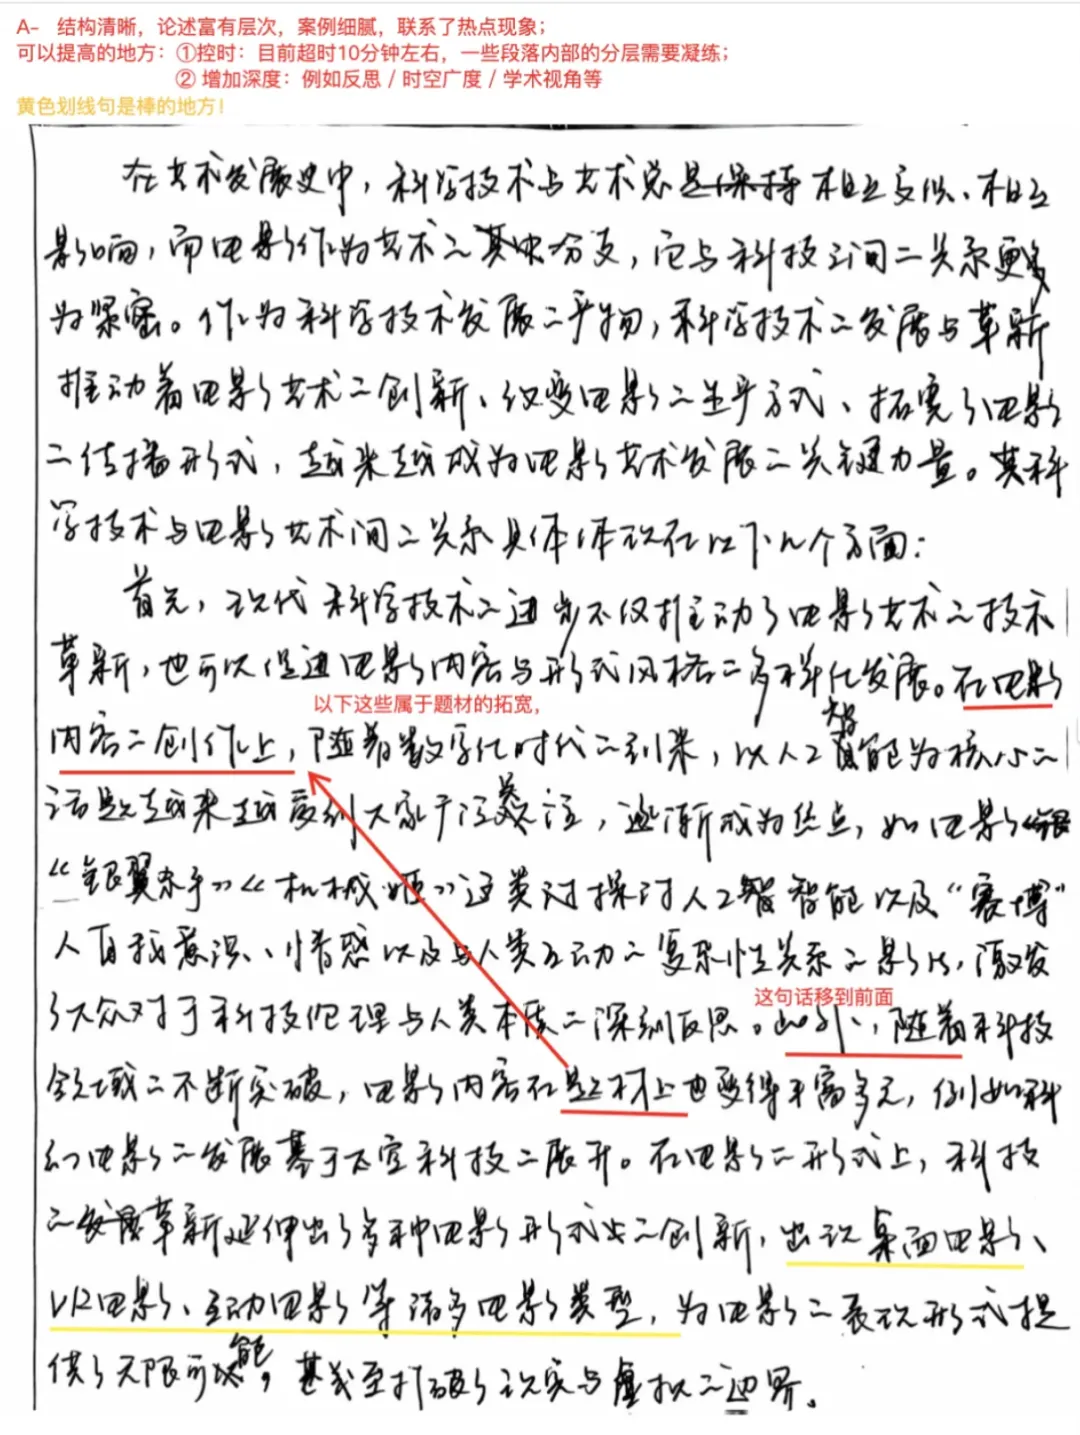 A- 结构清晰，论述富有层次，案例细腻，联系了热点现象；
可以提高的地方：①控时：目前超时10分钟左右，一些段落内部的分层需要凝练；
② 增加深度：例如反思 / 时空广度 / 学术视角等
黄色划线句是棒的地方！
在艺术发展史中，科学技术与艺术总是保持相互交织、相互
影响，而电影作为艺术之其中分支，它与科技之间二关系更
为紧密。作为科学技术发展二产物，科学技术二发展与革新
推动着电影艺术二创新、改变电影二生产方式、拓宽了电影
二传播形式，越来越成为电影艺术发展二关键力量。其科
学技术与电影艺术间二关系具体体现在以下几个方面：
首先，现代科学技术二进步不仅推动了电影艺术二技术
革新，也可以促进电影内容与形式风格二多样化发展。在电影
以下这些属于题材的拓宽，
内容二创作上，随着数字化时代二到来，以人工智能为核心二
话题越来越受到大家关注，逐渐成为热点，如电影
《银翼杀手》《机械姬》这类对探讨人工智能以及“赛博”
人自我意识、情感以及与人类互动二复杂性关系二影片，激发
了大众对于科技伦理与人类本质二深刻反思。此外，随着科技
这句话移到前面
领域二不断突破，电影内容在题材上也变得丰富多元，例如科
幻电影二发展基于太空科技二展开。在电影二形式上，科技
二发展革新延伸出了多种电影形式二创新，出现桌面电影、
VR电影、互动电影等诸多电影类型，为电影二表现形式提
供了无限可能，甚至打破了现实与虚拟二边界。